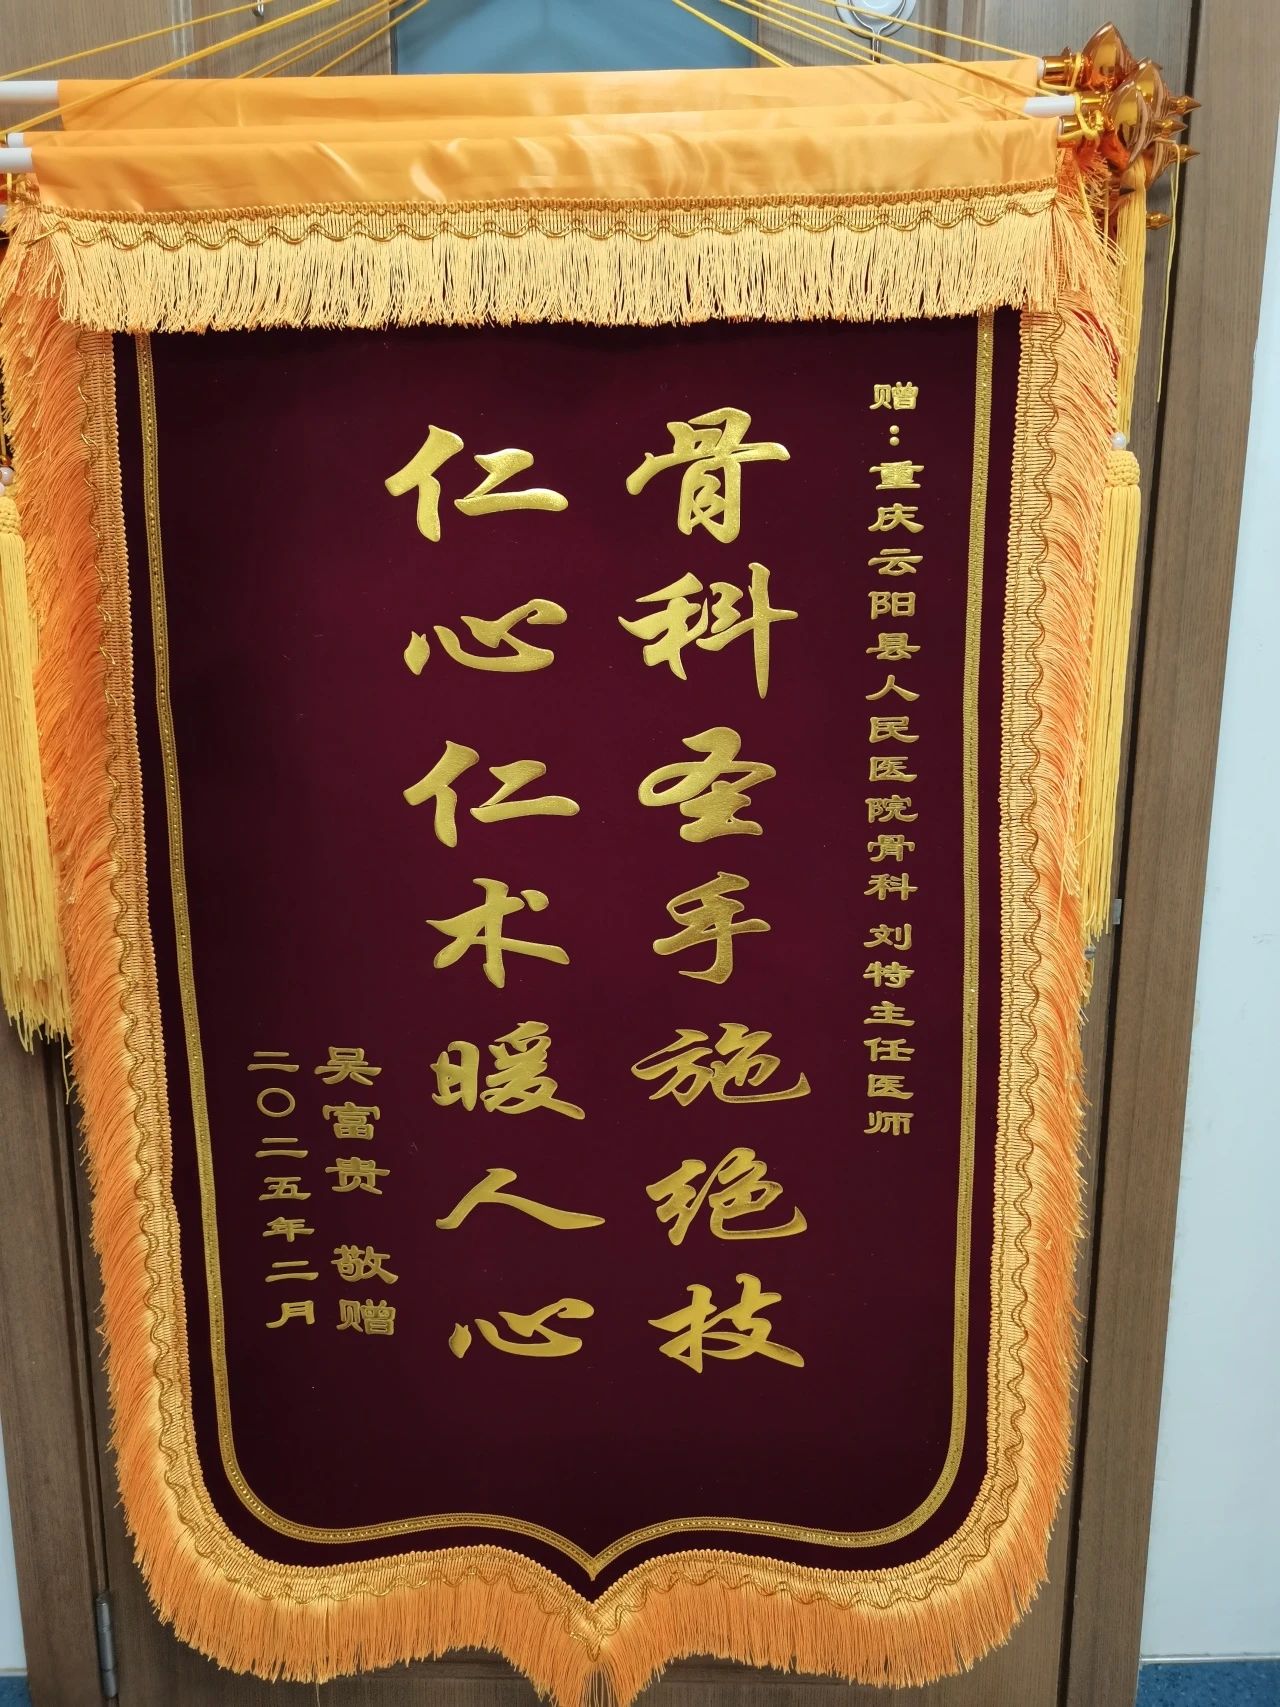 赠：重庆云阳县人民医院骨科 刘特主任医师
骨科圣手施绝技
仁心仁术暖人心
吴富贵 敬赠
二〇二五年二月